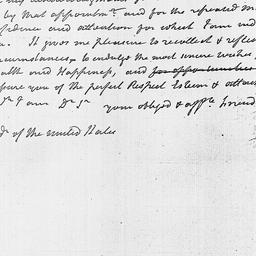 by that appointmt. and for the repeated
fidence and attention for which I am
It gives me pleasure to recollect & reflec
circumstances, to indulge the most sincere wishes
alth and Happiness, and for opportunities
ssure you of the perfect Respect Esteem & attac
I am Dr Sr your obliged & affte. Friend
of the United States